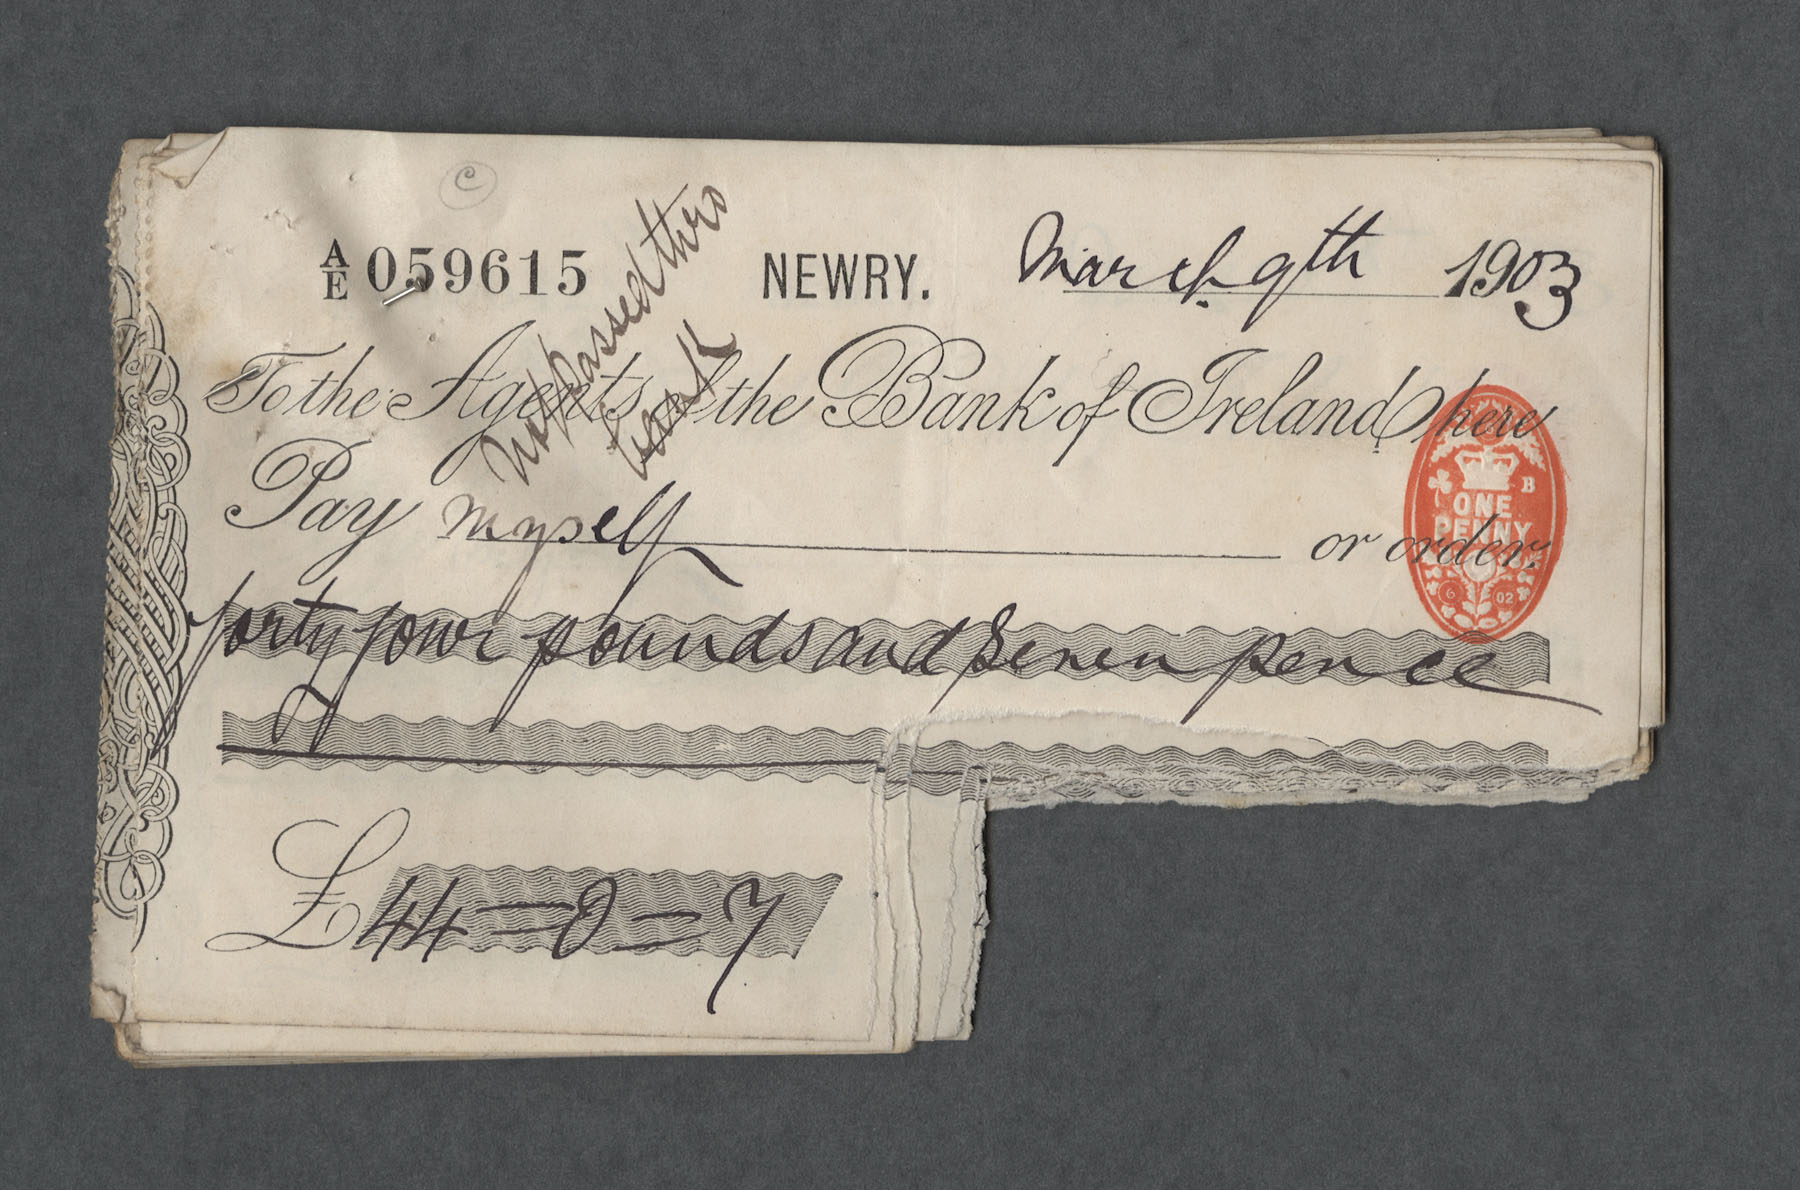 ©
A/E 059615 NEWRY. March 9th 1903
not passed thro
bank
To the Agents of the Bank of Ireland here
Pay myself or order.
forty four pounds and seven pence
£44=0=7
B
ONE
PENNY
6 02